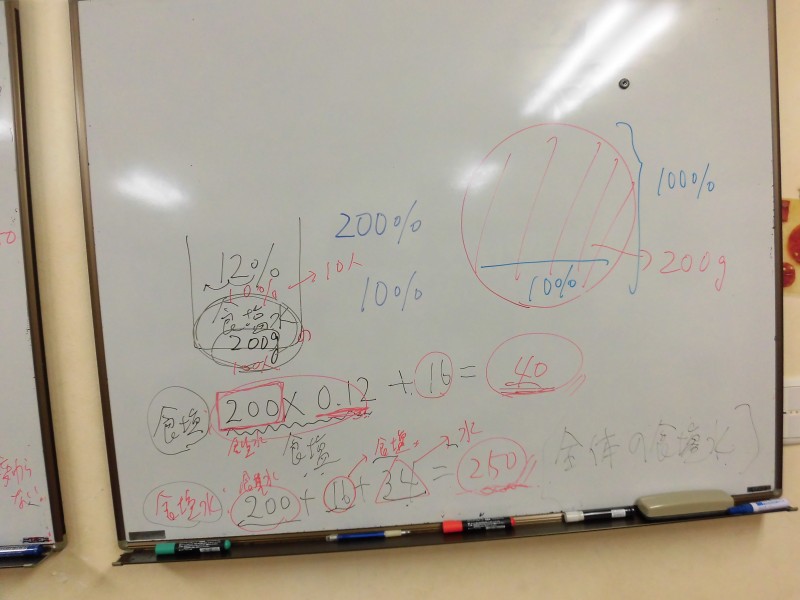 100%
200%
200g
12%
10%
10人
10%
10%
食塩水
200g
の
食塩 200×0.12+16=40
食塩水 食塩
食塩 水
食塩水 食塩水 200+16+34=250 全体の食塩水